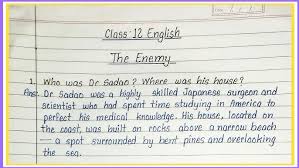 Class-12 English
The Enemy
1. Who was Dr Sadao? Where was his house?
Ans: Dr. Sadao was a highly skilled Japanese surgeon and
scientist who had spent time studying in America to
perfect his medical knowledge. His house, located on
the coast, was built on rocks above a narrow beach
— a spot surrounded by bent pines and overlooking
the sea.